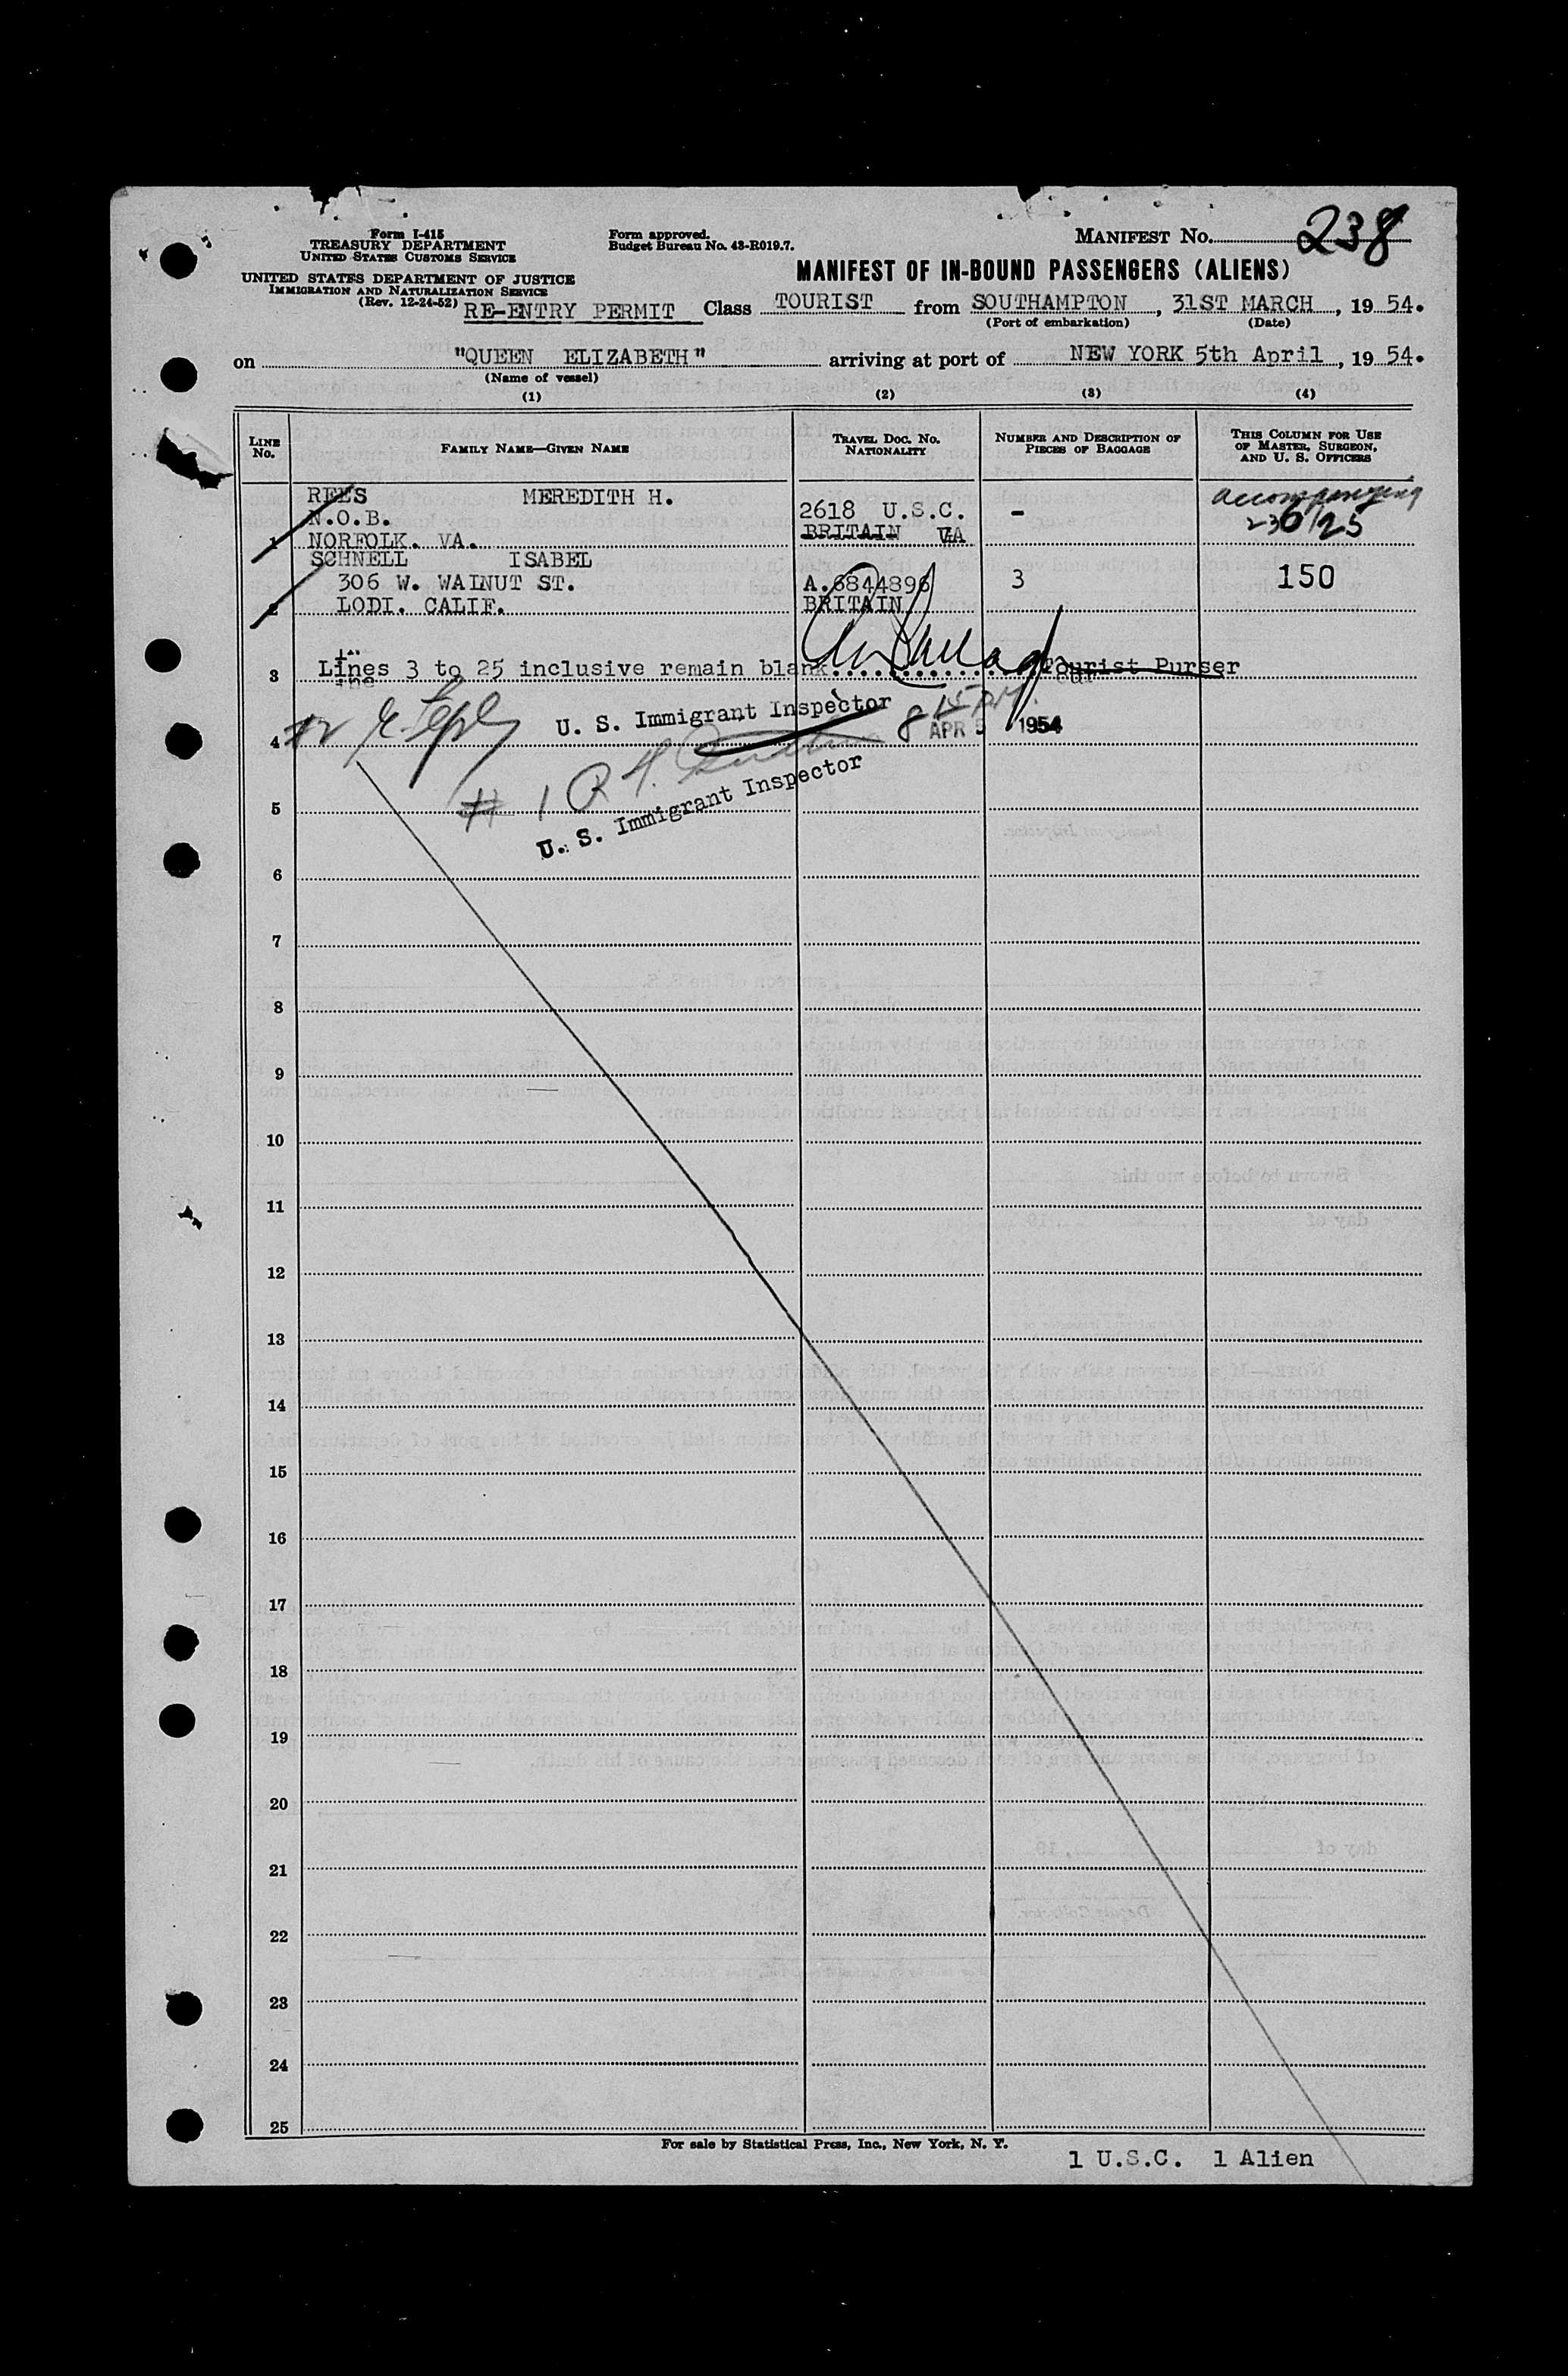 Form I-415
TREASURY DEPARTMENT
UNITED STATES CUSTOMS SERVICE
UNITED STATES DEPARTMENT OF JUSTICE
IMMIGRATION AND NATURALIZATION SERVICE
(Rev. 12-24-52)
Form approved.
Budget Bureau No. 43-R019.7.
MANIFEST No. 238
MANIFEST OF IN-BOUND PASSENGERS (ALIENS)
RE-ENTRY PERMIT Class TOURIST from SOUTHAMPTON, 31ST MARCH, 19 54.
(Port of embarkation) (Date)
on "QUEEN ELIZABETH" arriving at port of NEW YORK 5th April, 19 54.
(Name of vessel)
(1) (2) (3) (4)
LINE No. FAMILY NAME—GIVEN NAME TRAVEL DOC. NO. NATIONALITY NUMBER AND DESCRIPTION OF PIECES OF BAGGAGE THIS COLUMN FOR USE OF MASTER, SURGEON, AND U. S. OFFICERS
REES MEREDITH H. accompanying
N.O.B. 2618 U.S.C. - 236/25
1 NORFOLK. VA. BRITAIN
SCHNELL ISABEL
306 W. WALNUT ST. A.6844896 3 150
2 LODI. CALIF. BRITAIN
3 Lines 3 to 25 inclusive remain blank Tourist Purser
U. S. Immigrant Inspector 8 15 PM
4 APR 5 1954
# 1 R
5 U. S. Immigrant Inspector
6
7
8
9
10
11
12
13
14
15
16
17
18
19
20
21
22
23
24
25
For sale by Statistical Press, Inc., New York, N. Y.
1 U.S.C. 1 Alien